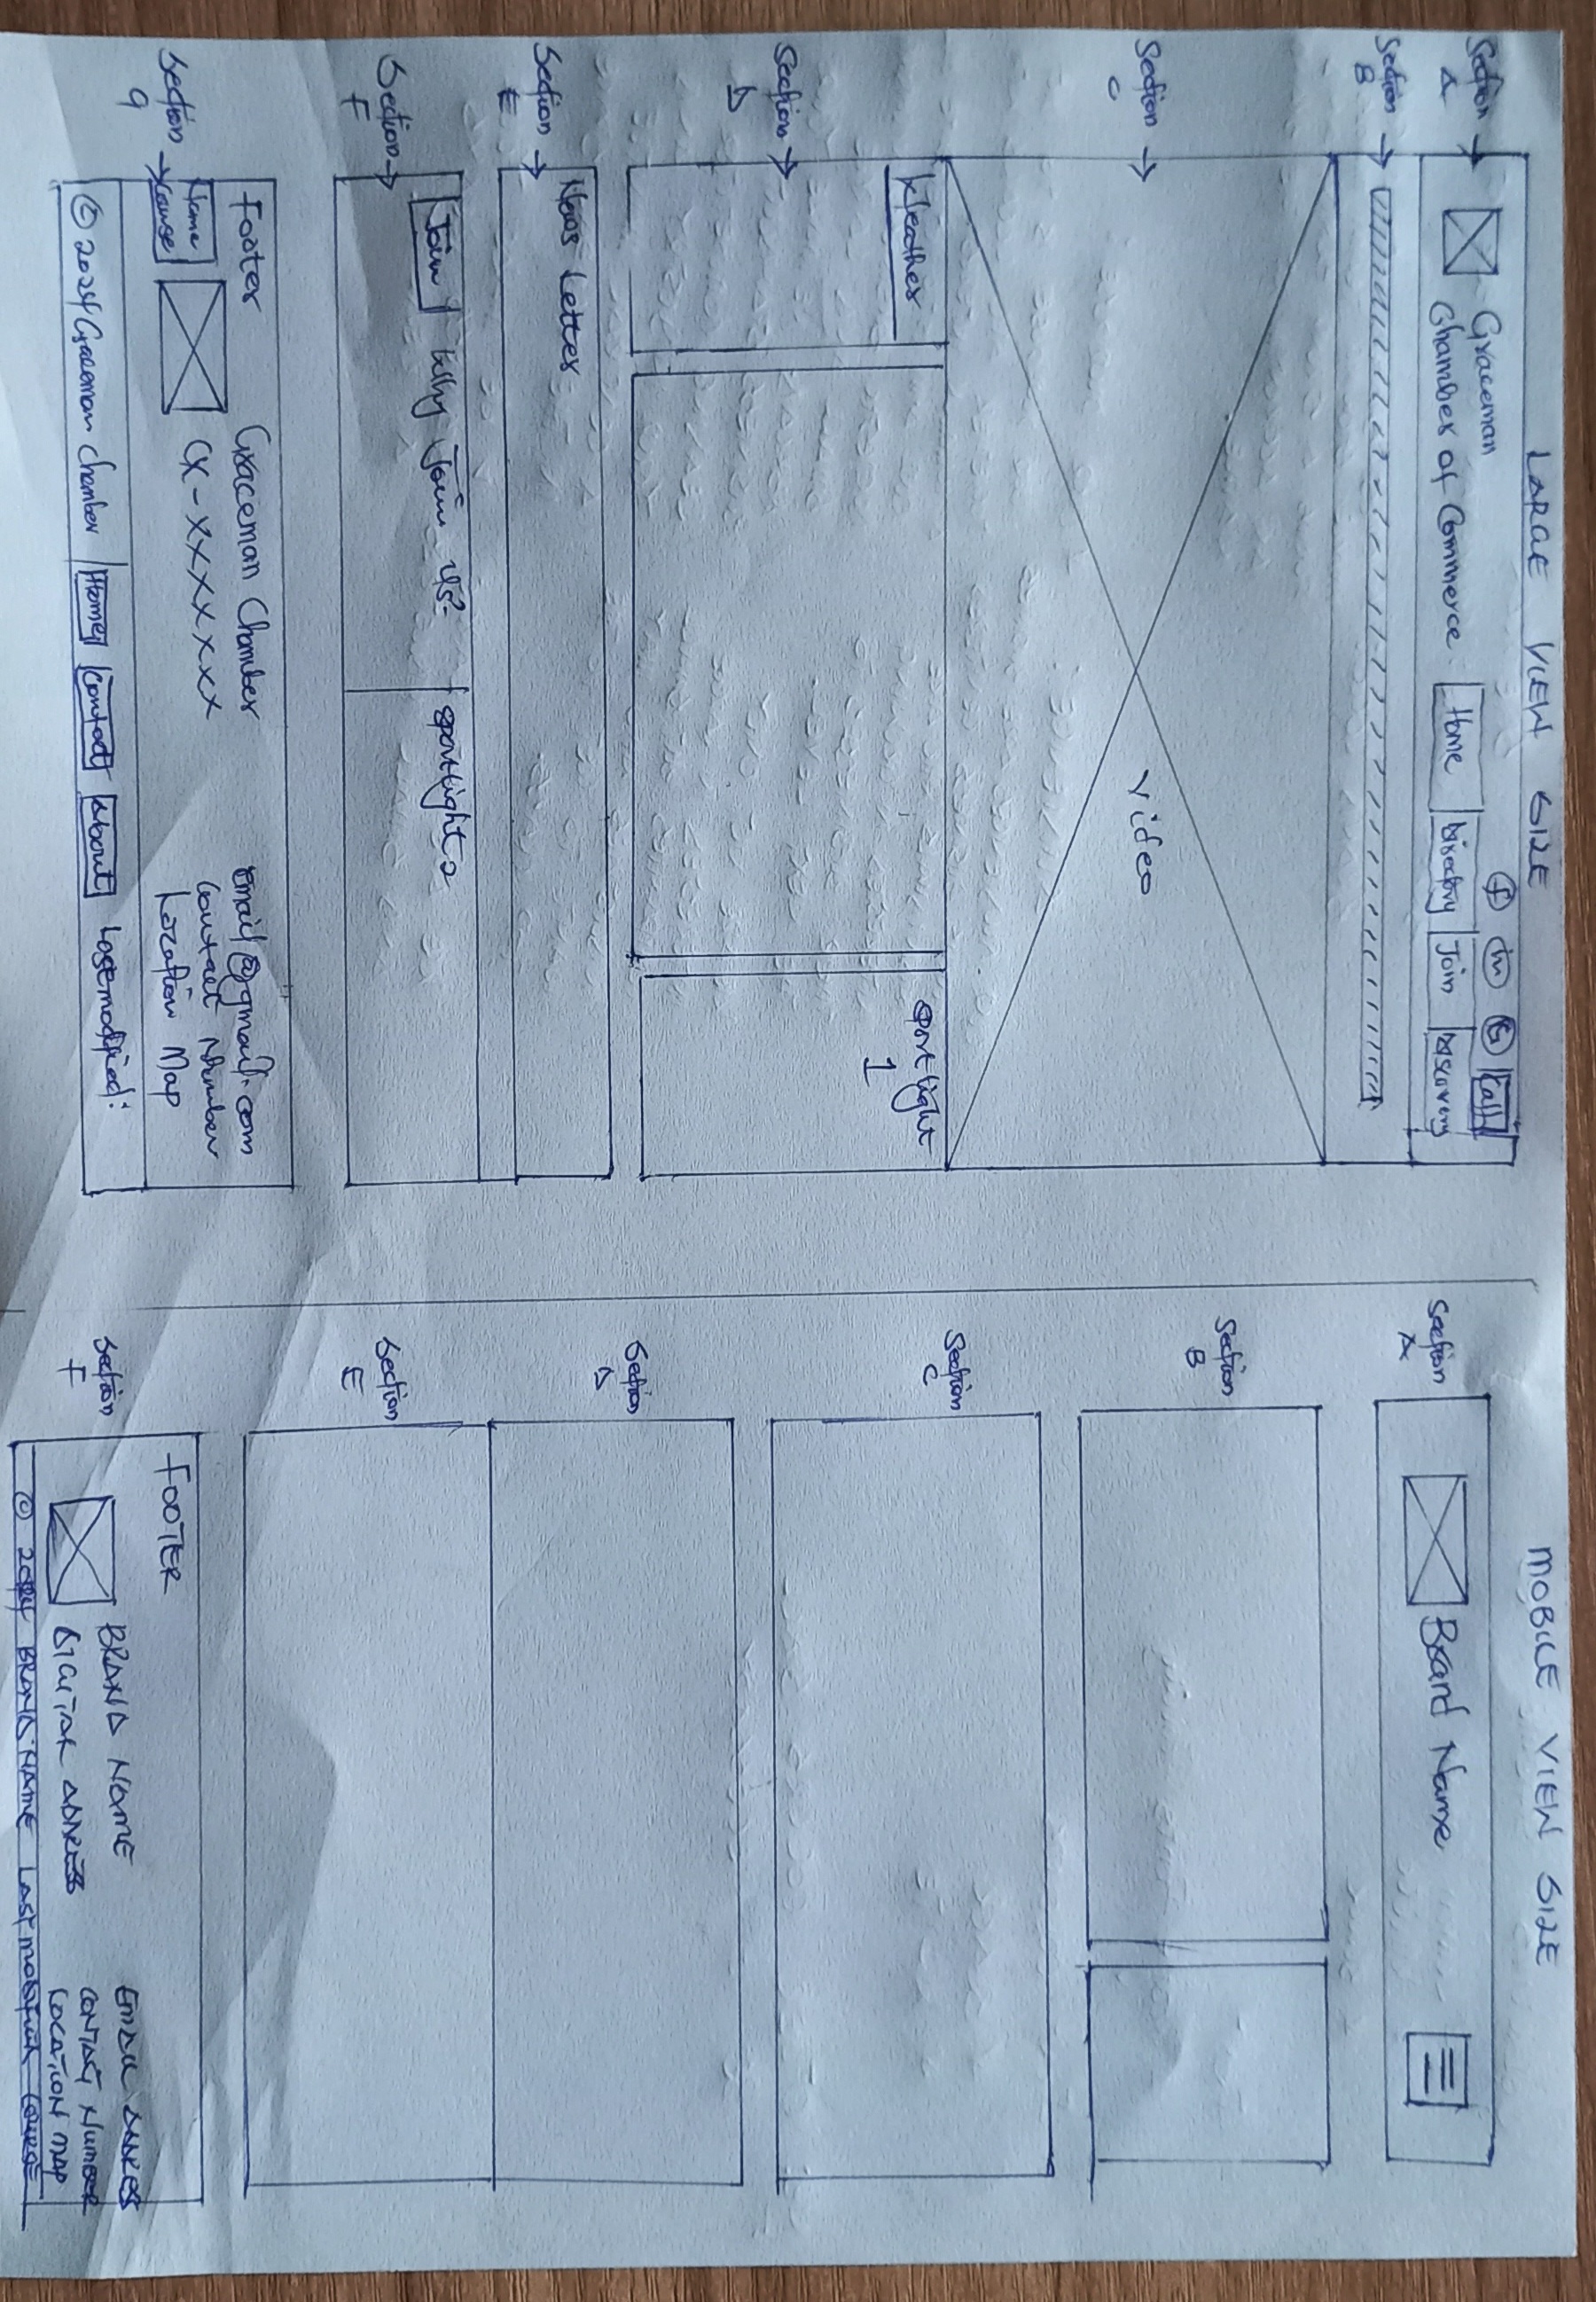 LARGE VIEW SIZE
Section
A
Graceman
Chamber of Commerce
f in G Call
Home Directory Join Discovery
Section
B
Section
C
Video
Weather
Sportlight
1
Section
D
News Letter
Section
E
Join Why Join us?
Sportlight 2
Section
F
Footer
Graceman Chamber
CX-XXXXXXX
email@gmail.com
Contact Number
Location Map
Name
Course
Section
G
© 2024 Graceman Chamber
Home Contact About Last modified:
MOBILE VIEW SIZE
Section
A
Brand Name
Section
B
Section
C
Section
D
Section
E
FOOTER
Section
F
BRAND NAME
DIGITAL ADDRESS
EMAIL ADDRES
CONTACT NUMBER
LOCATION MAP
© 2024 BRAND NAME LAST MODIFIED COURSE